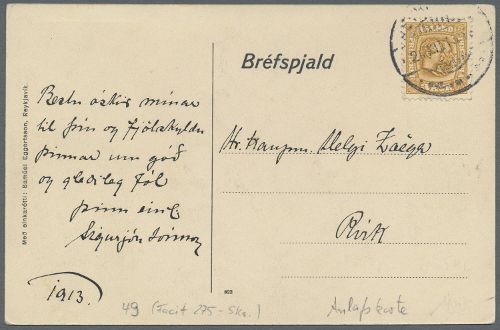 Bréfspjald
Með einkarétti: Samúel Eggertsson, Reykjavík.
Beztu óskir mínar
til þín og fjölskyldu
þinnar um góð
og gleðileg jól
þinn einl.
Sigurjón
1913.
Hr. kaupm. Helgi Zoëga
Rvík
49 (Facit 275-Skr.)